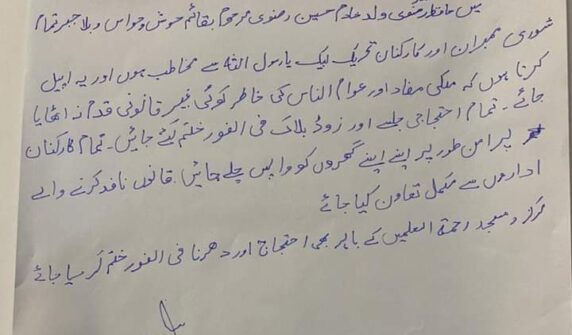 میں حافظ سعد رضوی ولد خادم حسین رضوی مرحوم بقائم ہوش و حواس و بلا جبر تمام
شوری ممبران اور کارکنان تحریک لبیک یا رسول اللہ سے مخاطب ہوں اور یہ اپیل
کرتا ہوں کہ ملکی مفاد اور عوام الناس کی خاطر کوئی غیر قانونی قدم نہ اٹھایا
جائے۔ تمام احتجاجی جلسے اور روڈ بلاک فی الفور ختم کئے جائیں۔ تمام کارکنان
پر امن طور پر اپنے اپنے گھروں کو واپس چلے جائیں۔ قانون نافذ کرنے والے
اداروں سے مکمل تعاون کیا جائے
مرکز و مسجد رحمۃ العلمین کے باہر بھی احتجاج اور دھرنا فی الفور ختم کر دیا جائے